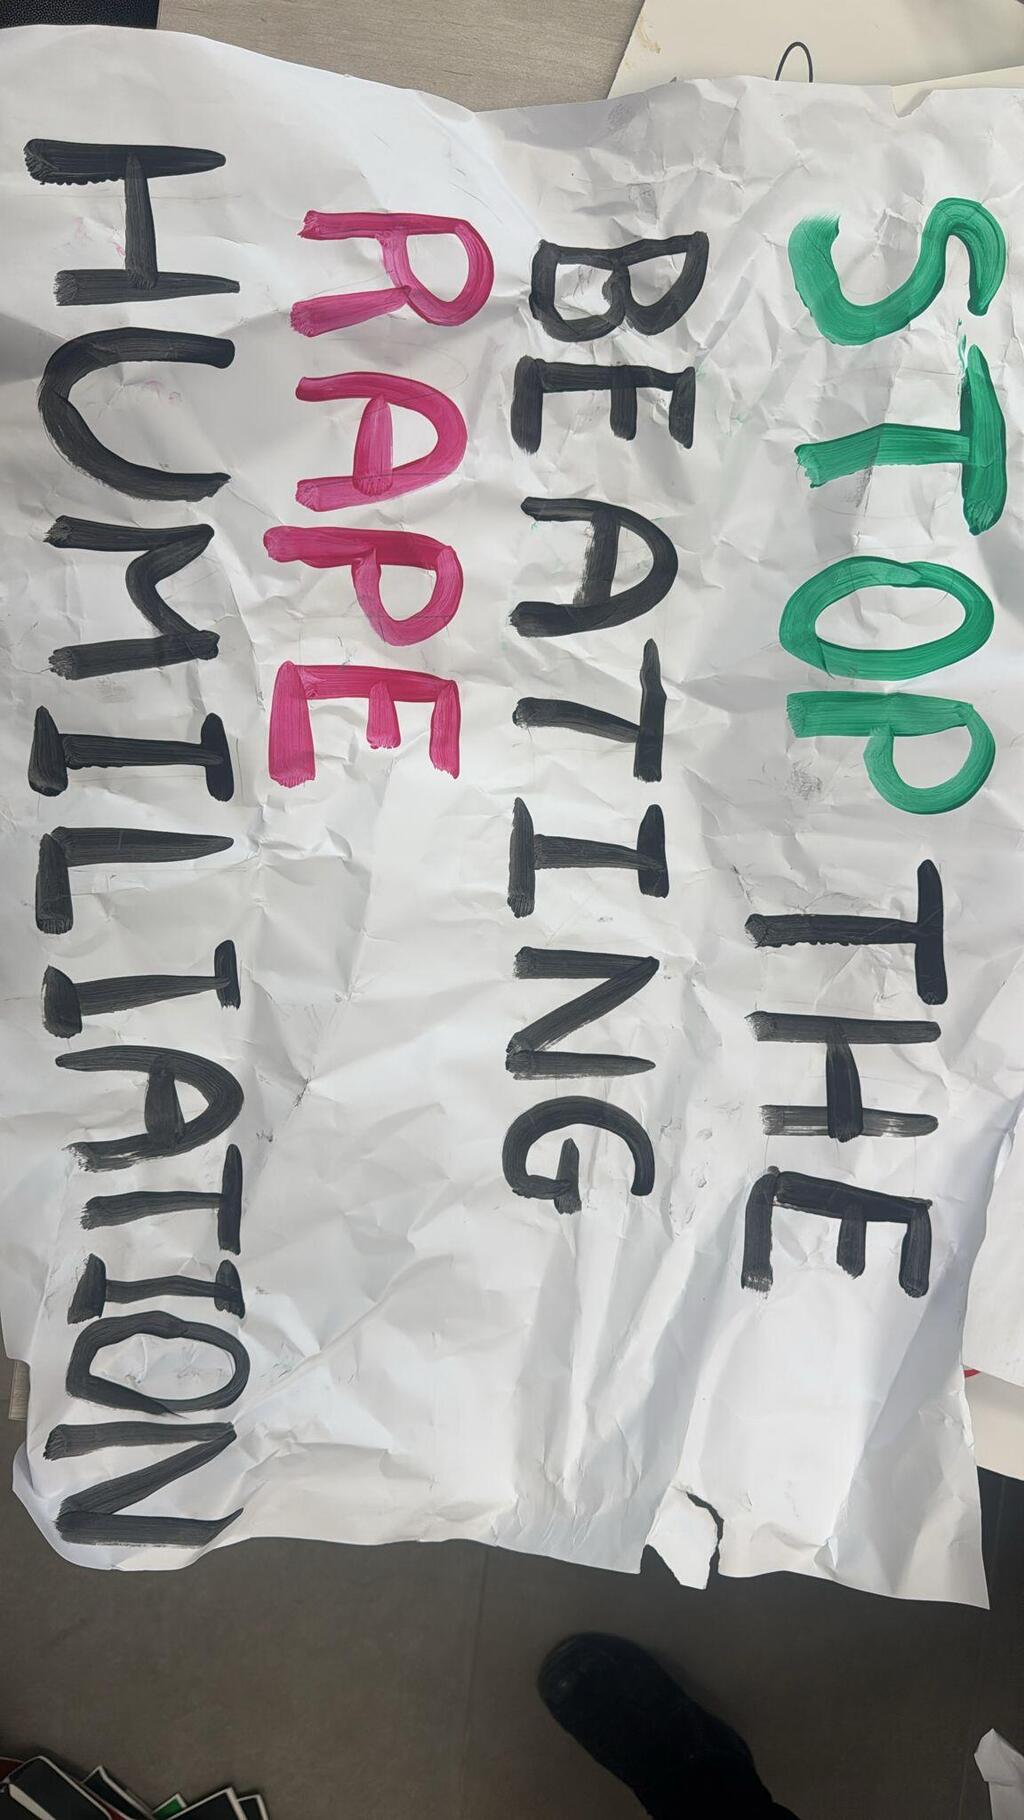 STOP THE
BEATING
RAPE
HUMILIATION